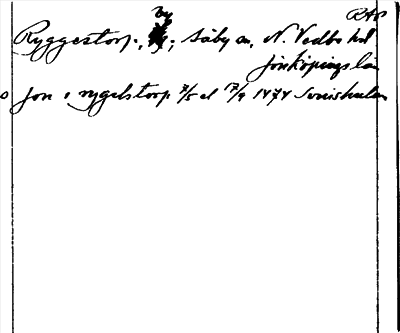 RAP
Ryggestorp, by, Säby sn, N. Vedbo hd
Jönköpings län
Jon i rygelstorp 7/5 el 17/9 1474